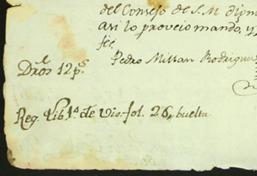 del Consejo de S.M. dipu
asi lo proveio mando, y
fée
Pedro Millan Rodriguez
Dros 12 ps
Reg. Lib 1º de Vis. fol. 26, buelta